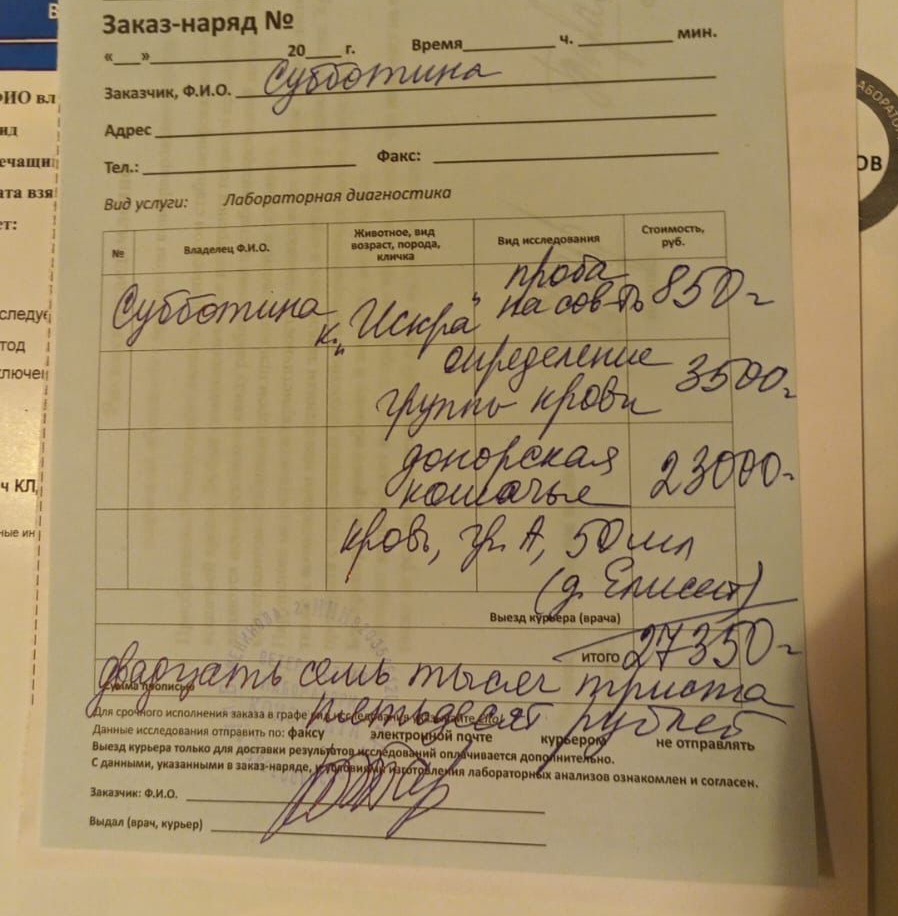 Заказ-наряд №
«___»__________ 20___ г. Время_______ ч. _______ мин.
Заказчик, Ф.И.О. Субботина
Адрес
Тел.: Факс:
Вид услуги: Лабораторная диагностика
№ Владелец Ф.И.О. Животное, вид возраст, порода, кличка Вид исследования Стоимость, руб.
Субботина к. "Искра" проба на совм-ть 850-
определение группы крови 3500-
донорская кошачья 23000-
кровь, гр. А, 50 мл
Выезд курьера (врача)
итого 27350-
двадцать семь тысяч триста
Сумма прописью
пятьдесят рублей
Для срочного исполнения заказа в графе
Данные исследования отправить по: факсу электронной почте курьером не отправлять
Выезд курьера только для доставки результатов исследований оплачивается дополнительно.
С данными, указанными в заказ-наряде, и условиями изготовления лабораторных анализов ознакомлен и согласен.
Заказчик: Ф.И.О.
Выдал (врач, курьер)